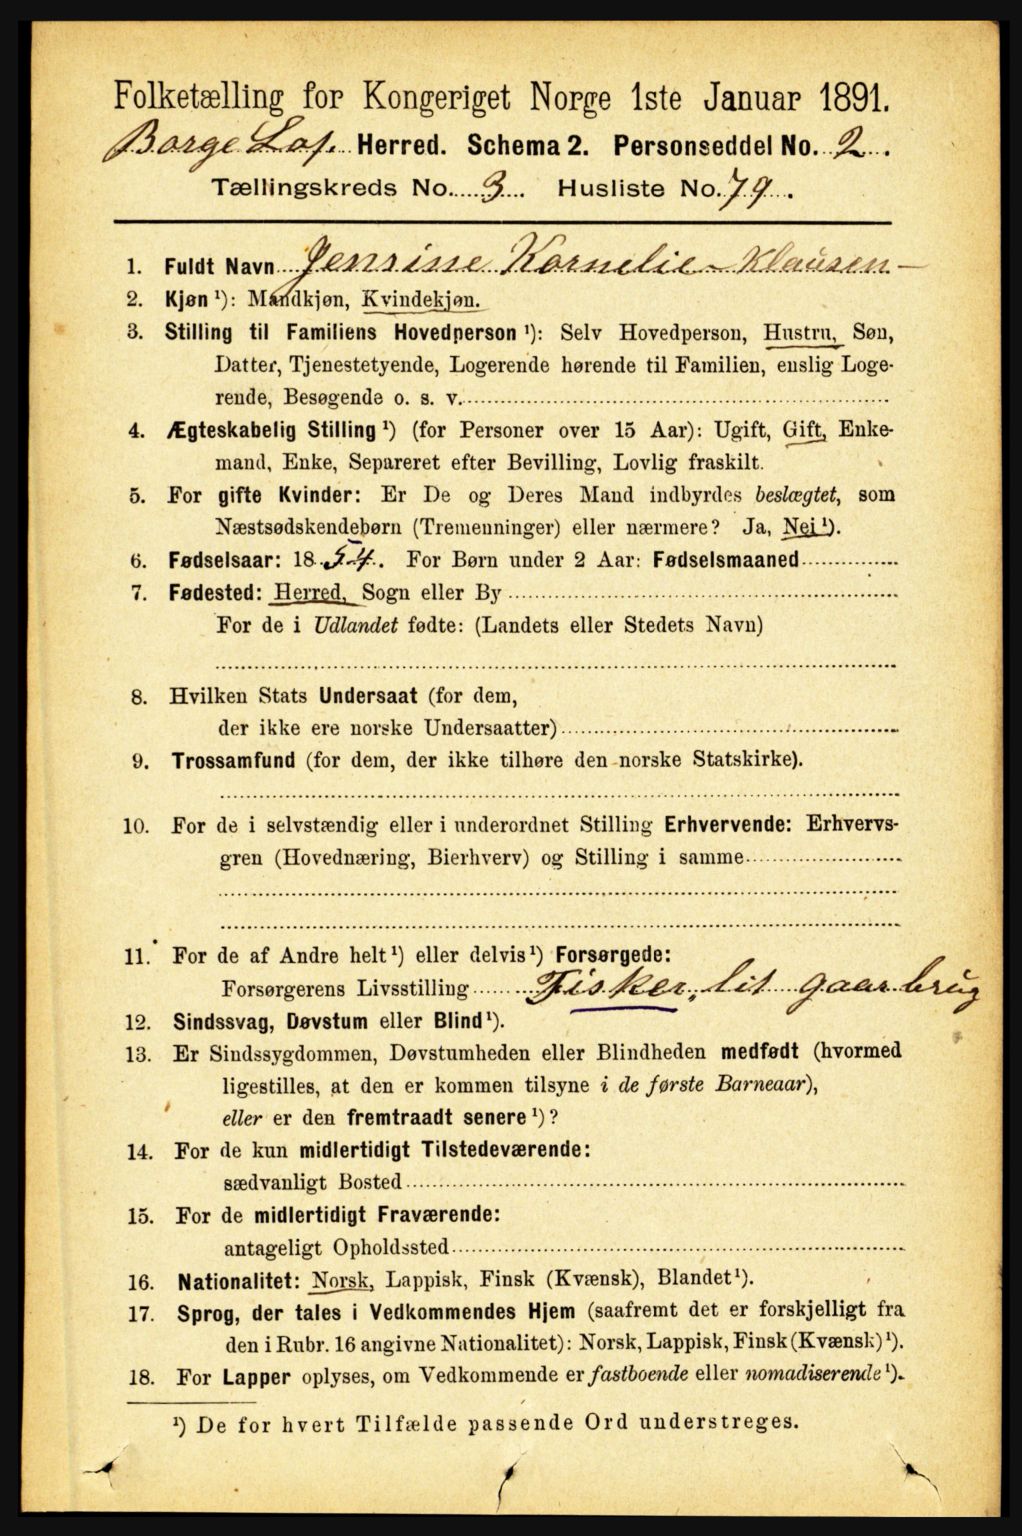 Folketælling for Kongeriget Norge 1ste Januar 1891.
Borge Lof. Herred. Schema 2. Personseddel No. 2.
Tællingskreds No. 3. Husliste No. 79.
1. Fuldt Navn Jensine Kornelie Klausen
2. Kjøn ¹): Mandkjøn, Kvindekjøn.
3. Stilling til Familiens Hovedperson ¹): Selv Hovedperson, Hustru, Søn,
Datter, Tjenestetyende, Logerende hørende til Familien, enslig Loge-
rende, Besøgende o. s. v.
4. Ægteskabelig Stilling ¹) (for Personer over 15 Aar): Ugift, Gift, Enke-
mand, Enke, Separeret efter Bevilling, Lovlig fraskilt.
5. For gifte Kvinder: Er De og Deres Mand indbyrdes beslægtet, som
Næstsødskendebørn (Tremenninger) eller nærmere? Ja, Nei ¹).
6. Fødselsaar: 1854. For Børn under 2 Aar: Fødselsmaaned
7. Fødested: Herred, Sogn eller By
For de i Udlandet fødte: (Landets eller Stedets Navn)
8. Hvilken Stats Undersaat (for dem,
der ikke ere norske Undersaatter)
9. Trossamfund (for dem, der ikke tilhøre den norske Statskirke).
10. For de i selvstændig eller i underordnet Stilling Erhvervende: Erhvervs-
gren (Hovednæring, Bierhverv) og Stilling i samme
11. For de af Andre helt ¹) eller delvis ¹) Forsørgede:
Forsørgerens Livsstilling Fisker, lit gaarbrug
12. Sindssvag, Døvstum eller Blind ¹).
13. Er Sindssygdommen, Døvstumheden eller Blindheden medfødt (hvormed
ligestilles, at den er kommen tilsyne i de første Barneaar),
eller er den fremtraadt senere ¹)?
14. For de kun midlertidigt Tilstedeværende:
sædvanligt Bosted
15. For de midlertidigt Fraværende:
antageligt Opholdssted
16. Nationalitet: Norsk, Lappisk, Finsk (Kvænsk), Blandet ¹).
17. Sprog, der tales i Vedkommendes Hjem (saafremt det er forskjelligt fra
den i Rubr. 16 angivne Nationalitet): Norsk, Lappisk, Finsk (Kvænsk) ¹).
18. For Lapper oplyses, om Vedkommende er fastboende eller nomadiserende ¹).
¹) De for hvert Tilfælde passende Ord understreges.